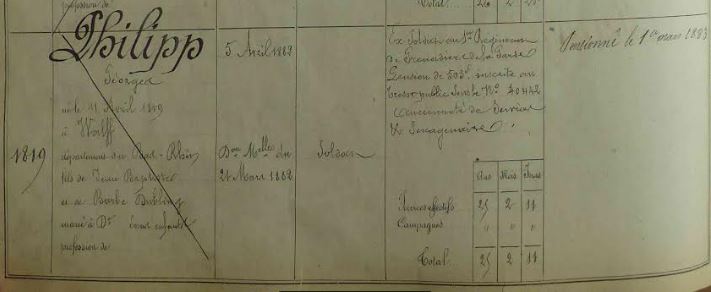 profession de
Total 26 2 21
Philipp
Georges
né le 11 Avril 1819
à Valff
département du Bad-Rhin
fils de Jean Baptiste
et de Barbe
marié à Dme
profession de
1819
5 Avril 1882
Don Melles du
21 Mars 1882
Soldat
Ex Soldat au 1er Régiment
de Grenadiers de la Garde
Pension de 502f. inscrite au
trésor public sous le No 40442
ancienneté de Services
& Sexagénaire
Ans Mois Jours
Services effectifs 25 2 11
Campagnes " " "
Total 25 2 11
Pensionné le 1er mars 1883